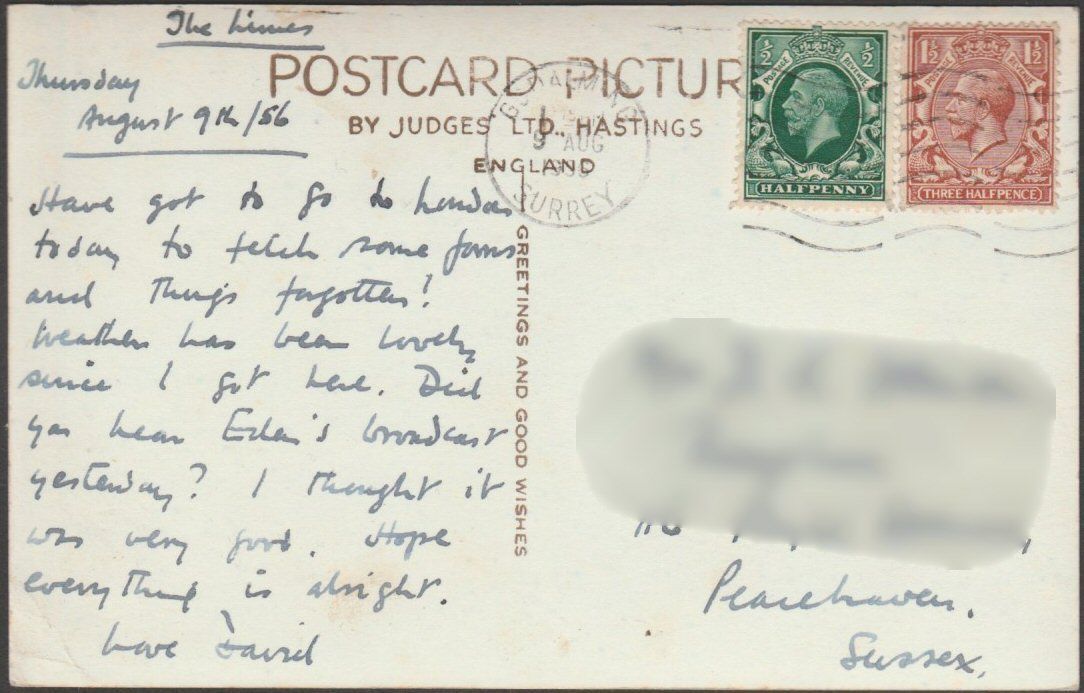 The Limes
Thursday
August 9th/56
POSTCARD PICTUR
BY JUDGES LTD., HASTINGS
ENGLAND
GODALMING
9 AUG
SURREY
½ ½
POSTAGE REVENUE
HALFPENNY
1½ 1½
POSTAGE REVENUE
THREE HALFPENCE
GREETINGS AND GOOD WISHES
Have got to go to London
today to fetch some
and things forgotten!
Weather has been lovely
since I got here. Did
you hear Eden's broadcast
yesterday? I thought it
was very good. Hope
everything is alright.
Love David
Peacehaven.
Sussex.